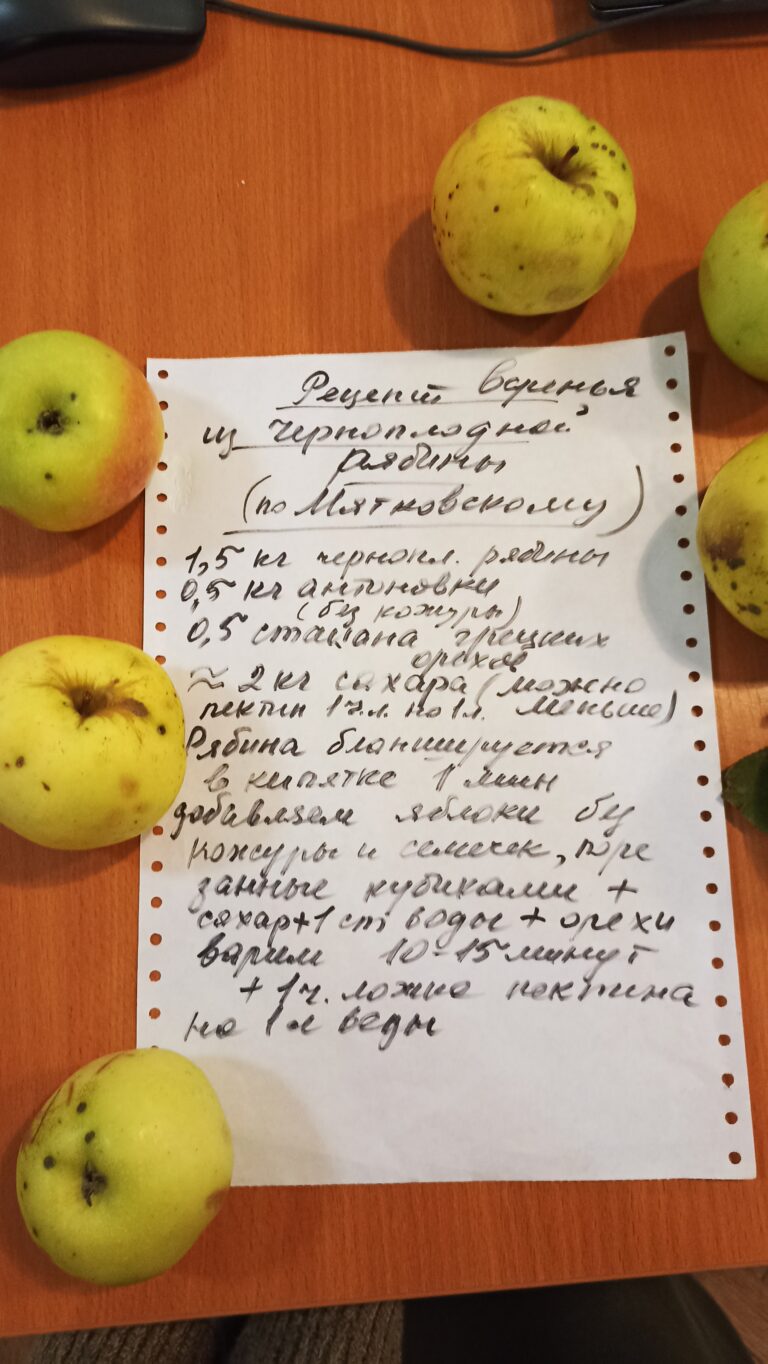 Рецепт варенья
из черноплодной
рябины
(по Мятковскому)
1,5 кг чернопл. рябины
0,5 кг антоновки
(без кожуры)
0,5 стакана грецких
орехов
≈ 2 кг сахара (можно
пектин 1 ч.л. на 1 л. меньше)
Рябина бланшируется
в кипятке 1 мин
добавляем яблоки без
кожуры и семечек, поре
занные кубиками +
сахар+1 ст воды + орехи
варим 10-15 минут
+ 1 ч. ложка пектина
на 1 л воды